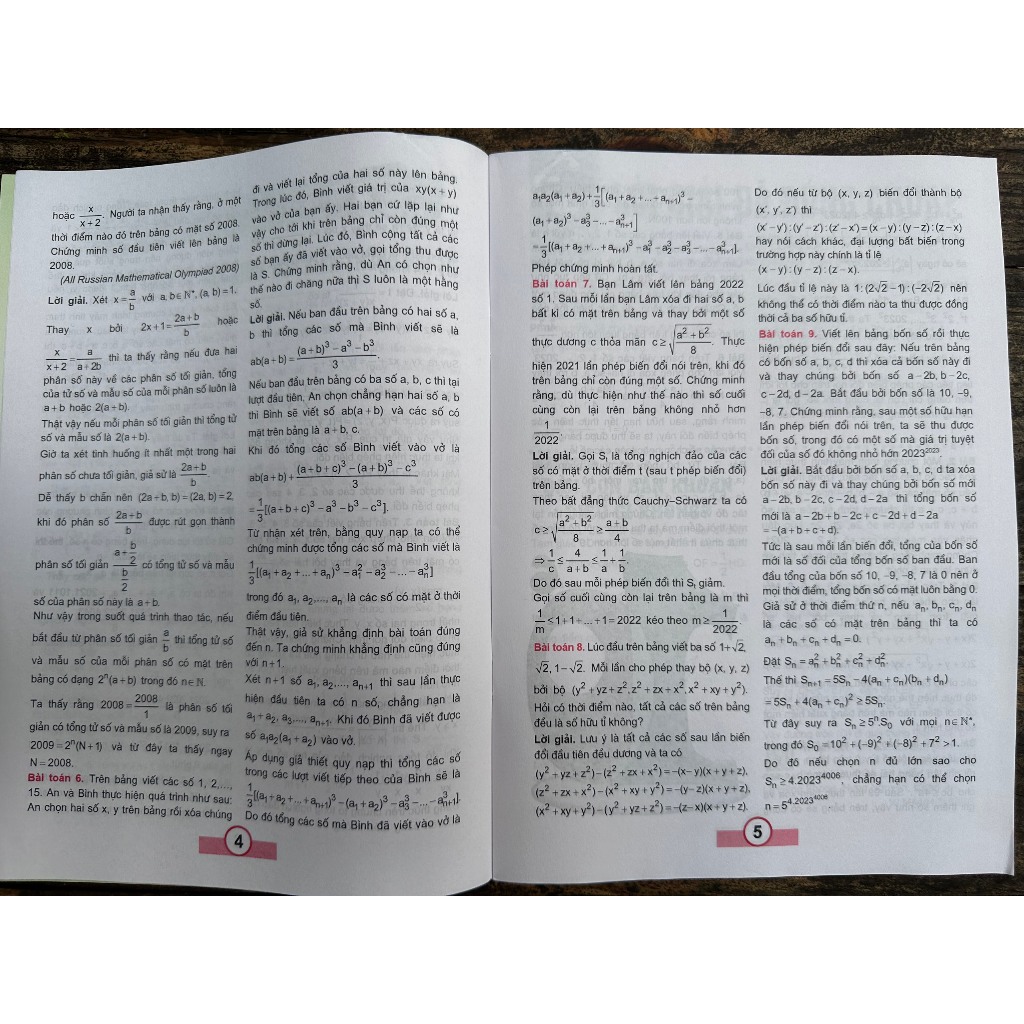 hoặc x/(x+2). Người ta nhận thấy rằng, ở một
thời điểm nào đó trên bảng có mặt số 2008.
Chứng minh số đầu tiên viết lên bảng là
2008.
(All Russian Mathematical Olympied 2008)
Lời giải. Xét x = a/b với a, b ∈ N*, (a, b) = 1.
Thay x bởi 2x+1 = (2a+b)/b hoặc
x/(x+2) = a/(a+2b) thì ta thấy rằng nếu đưa hai
phân số này về các phân số tối giản, tổng
của tử số và mẫu số của mỗi phân số luôn là
a+b hoặc 2(a+b).
Thật vậy nếu mỗi phân số tối giản thì tổng tử
số và mẫu số là 2(a+b).
Giờ ta xét tình huống ít nhất một trong hai
phân số chưa tối giản, giả sử là (2a+b)/b.
Dễ thấy b chẵn nên (2a+b, b) = (2a, b) = 2,
khi đó phân số (2a+b)/b được rút gọn thành
phân số tối giản (a+b/2)/(b/2) có tổng tử số và mẫu
số của phân số này là a+b.
Như vậy trong suốt quá trình thao tác, nếu
bắt đầu từ phân số tối giản a/b thì tổng tử số
và mẫu số của mỗi phân số có mặt trên
bảng có dạng 2ⁿ(a+b) trong đó n∈N.
Ta thấy rằng 2008 = 2008/1 là phân số tối
giản có tổng tử số và mẫu số là 2009, suy ra
2009 = 2ⁿ(N+1) và từ đây ta thấy ngay
N = 2008.
Bài toán 6. Trên bảng viết các số 1, 2,...,
15. An và Bình thực hiện quá trình như sau:
An chọn hai số x, y trên bảng rồi xóa chúng
đi và viết lại tổng của hai số này lên bảng,
Trong lúc đó, Bình viết giá trị của xy(x+y)
vào vở của bạn ấy. Hai bạn cứ lặp lại như
vậy cho tới khi trên bảng chỉ còn đúng một
số thì dừng lại. Lúc đó, Bình cộng tất cả các
số bạn ấy đã viết vào vở, gọi tổng thu được
là S. Chứng minh rằng, dù An có chọn như
thế nào đi chăng nữa thì S luôn là một hằng
số.
Lời giải. Nếu ban đầu trên bảng có hai số a,
b thì tổng các số mà Bình viết sẽ là
ab(a+b) = ((a+b)³ − a³ − b³)/3.
Nếu ban đầu trên bảng có ba số a, b, c thì tại
lượt đầu tiên, An chọn chẳng hạn hai số a, b
thì Bình sẽ viết số ab(a+b) và các số có
mặt trên bảng là a+b, c.
Khi đó tổng các số Bình viết vào vở là
ab(a+b) + ((a+b+c)³ − (a+b)³ − c³)/3
= 1/3[(a+b+c)³ − a³ − b³ − c³].
Từ nhận xét trên, bằng quy nạp ta có thể
chứng minh được tổng các số mà Bình viết là
1/3[(a₁+a₂+...+aₙ)³ − a₁³ − a₂³ − ... − aₙ³]
trong đó a₁, a₂,..., aₙ là các số có mặt ở thời
điểm đầu tiên.
Thật vậy, giả sử khẳng định bài toán đúng
đến n. Ta chứng minh khẳng định cũng đúng
với n+1.
Xét n+1 số a₁, a₂,..., aₙ₊₁ thì sau lần thực
hiện đầu tiên ta có n số, chẳng hạn là
a₁+a₂, a₃,..., aₙ₊₁. Khi đó Bình đã viết được
số a₁a₂(a₁+a₂) vào vở.
Áp dụng giả thiết quy nạp thì tổng các số
trong các lượt viết tiếp theo của Bình sẽ là
1/3[(a₁+a₂+...+aₙ₊₁)³ − (a₁+a₂)³ − a₃³ − ... − aₙ₊₁³].
Do đó tổng các số mà Bình đã viết vào vở là
4
a₁a₂(a₁+a₂) + 1/3[(a₁+a₂+...+aₙ₊₁)³ −
(a₁+a₂)³ − a₃³ − ... − aₙ₊₁³]
= 1/3[(a₁+a₂+...+aₙ₊₁)³ − a₁³ − a₂³ − a₃³ − ... − aₙ₊₁³].
Phép chứng minh hoàn tất.
Bài toán 7. Bạn Lâm viết lên bảng 2022
số 1. Sau mỗi lần bạn Lâm xóa đi hai số a, b
bất kì có mặt trên bảng và thay bởi một số
thực dương c thỏa mãn c ≥ √((a²+b²)/8). Thực
hiện 2021 lần phép biến đổi nói trên, khi đó
trên bảng chỉ còn đúng một số. Chứng minh
rằng, dù thực hiện như thế nào thì số cuối
cùng còn lại trên bảng không nhỏ hơn
1/2022.
Lời giải. Gọi Sₜ là tổng nghịch đảo của các
số có mặt ở thời điểm t (sau t phép biến đổi)
trên bảng.
Theo bất đẳng thức Cauchy–Schwarz ta có
c ≥ √((a²+b²)/8) ≥ (a+b)/4
⇒ 1/c ≤ 4/(a+b) ≤ 1/a + 1/b.
Do đó sau mỗi phép biến đổi thì Sₜ giảm.
Gọi số cuối cùng còn lại trên bảng là m thì
1/m < 1+1+...+1 = 2022 kéo theo m ≥ 1/2022.
Bài toán 8. Lúc đầu trên bảng viết ba số 1+√2,
√2, 1−√2. Mỗi lần cho phép thay bộ (x, y, z)
bởi bộ (y²+yz+z², z²+zx+x², x²+xy+y²).
Hỏi có thời điểm nào, tất cả các số trên bảng
đều là số hữu tỉ không?
Lời giải. Lưu ý là tất cả các số sau lần biến
đổi đầu tiên đều dương và ta có
(y²+yz+z²)−(z²+zx+x²) = −(x−y)(x+y+z),
(z²+zx+x²)−(x²+xy+y²) = −(y−z)(x+y+z),
(x²+xy+y²)−(y²+yz+z²) = −(z−x)(x+y+z).
Do đó nếu từ bộ (x, y, z) biến đổi thành bộ
(x', y', z') thì
(x'−y'):(y'−z'):(z'−x') = (x−y):(y−z):(z−x)
hay nói cách khác, đại lượng bất biến trong
trường hợp này chính là tỉ lệ
(x−y):(y−z):(z−x).
Lúc đầu tỉ lệ này là 1:(2√2−1):(−2√2) nên
không thể có thời điểm nào ta thu được đồng
thời cả ba số hữu tỉ.
Bài toán 9. Viết lên bảng bốn số rồi thực
hiện phép biến đổi sau đây: Nếu trên bảng
có bốn số a, b, c, d thì xóa cả bốn số này đi
và thay chúng bởi bốn số a−2b, b−2c,
c−2d, d−2a. Bắt đầu bởi bốn số là 10, −9,
−8, 7. Chứng minh rằng, sau một số hữu hạn
lần phép biến đổi nói trên, ta sẽ thu được
bốn số, trong đó có một số mà giá trị tuyệt
đối của số đó không nhỏ hơn 2023²⁰²³.
Lời giải. Bắt đầu bởi bốn số a, b, c, d ta xóa
bốn số này đi và thay chúng bởi bốn số mới
a−2b, b−2c, c−2d, d−2a thì tổng bốn số
mới là a−2b+b−2c+c−2d+d−2a
= −(a+b+c+d).
Tức là sau mỗi lần biến đổi, tổng của bốn số
mới là số đối của tổng bốn số ban đầu. Ban
đầu tổng của bốn số 10, −9, −8, 7 là 0 nên ở
mọi thời điểm, tổng bốn số có mặt luôn bằng 0.
Giả sử ở thời điểm thứ n, nếu aₙ, bₙ, cₙ, dₙ
là các số có mặt trên bảng thì ta có
aₙ+bₙ+cₙ+dₙ = 0.
Đặt Sₙ = aₙ²+bₙ²+cₙ²+dₙ².
Thế thì Sₙ₊₁ = 5Sₙ − 4(aₙ+cₙ)(bₙ+dₙ)
= 5Sₙ + 4(aₙ+cₙ)² ≥ 5Sₙ.
Từ đây suy ra Sₙ ≥ 5ⁿ.S₀ với mọi n∈N*,
trong đó S₀ = 10²+(−9)²+(−8)²+7² > 1.
Do đó nếu chọn n đủ lớn sao cho
Sₙ ≥ 4.2023⁴⁰⁰⁶, chẳng hạn có thể chọn
n = 5^(4.2023⁴⁰⁰⁶).
5